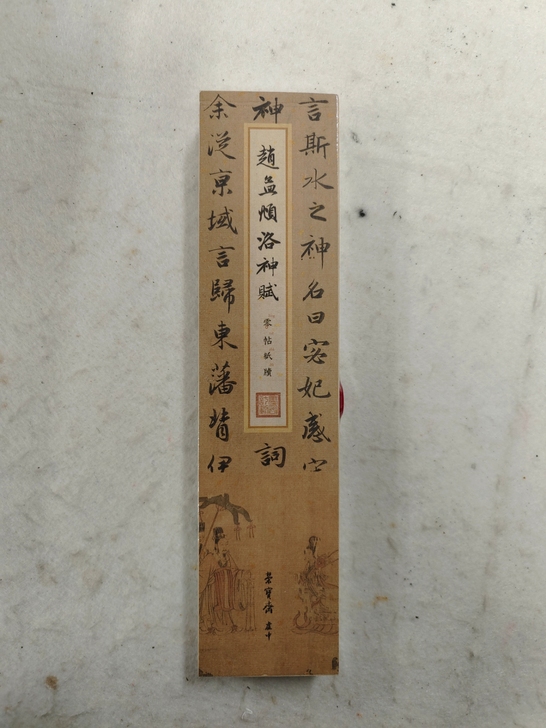 言斯水之神名曰宓妃感宋
神
詞
余從京域言歸東藩背伊
趙孟頫洛神賦
零帖紙牘
榮寶齋